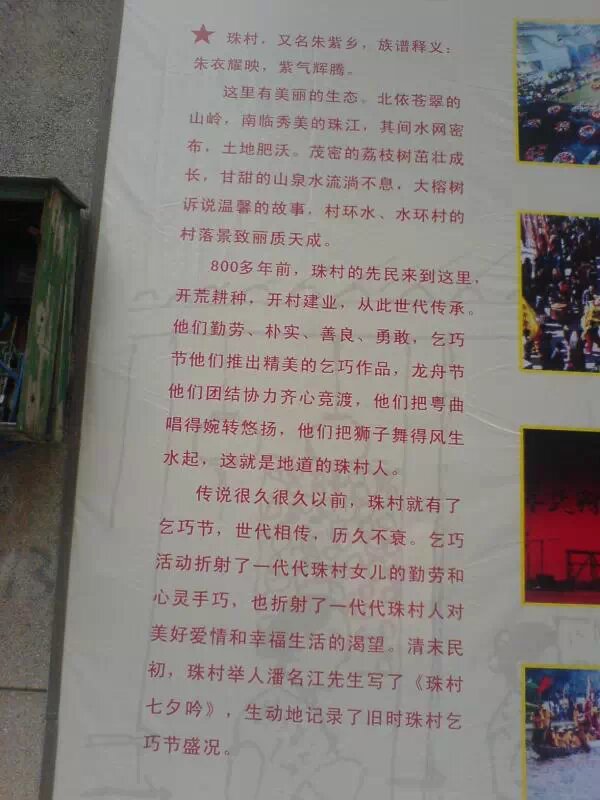 ★ 珠村，又名朱紫乡，族谱释义：
朱衣耀映，紫气辉腾。
这里有美丽的生态。北依苍翠的
山岭，南临秀美的珠江，其间水网密
布，土地肥沃。茂密的荔枝树茁壮成
长，甘甜的山泉水流淌不息，大榕树
诉说温馨的故事，村环水、水环村的
村落景致丽质天成。
800多年前，珠村的先民来到这里，
开荒耕种，开村建业，从此世代传承。
他们勤劳、朴实、善良、勇敢，乞巧
节他们推出精美的乞巧作品，龙舟节
他们团结协力齐心竞渡，他们把粤曲
唱得婉转悠扬，他们把狮子舞得风生
水起，这就是地道的珠村人。
传说很久很久以前，珠村就有了
乞巧节，世代相传，历久不衰。乞巧
活动折射了一代代珠村女儿的勤劳和
心灵手巧，也折射了一代代珠村人对
美好爱情和幸福生活的渴望。清末民
初，珠村举人潘名江先生写了《珠村
七夕吟》，生动地记录了旧时珠村乞
巧节盛况。